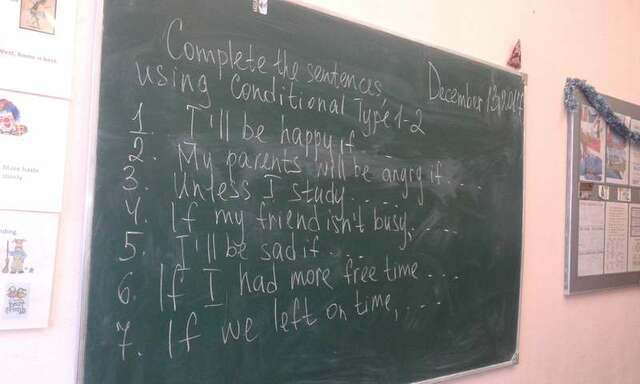 Complete the sentences,
using Conditional Type 1-2
December 13,
1. I'll be happy if...
2. My parents will be angry if....
3. Unless I study.....
4. If my friend isn't busy,....
5. I'll be sad if...
6. If I had more free time...
7. If we left on time,....